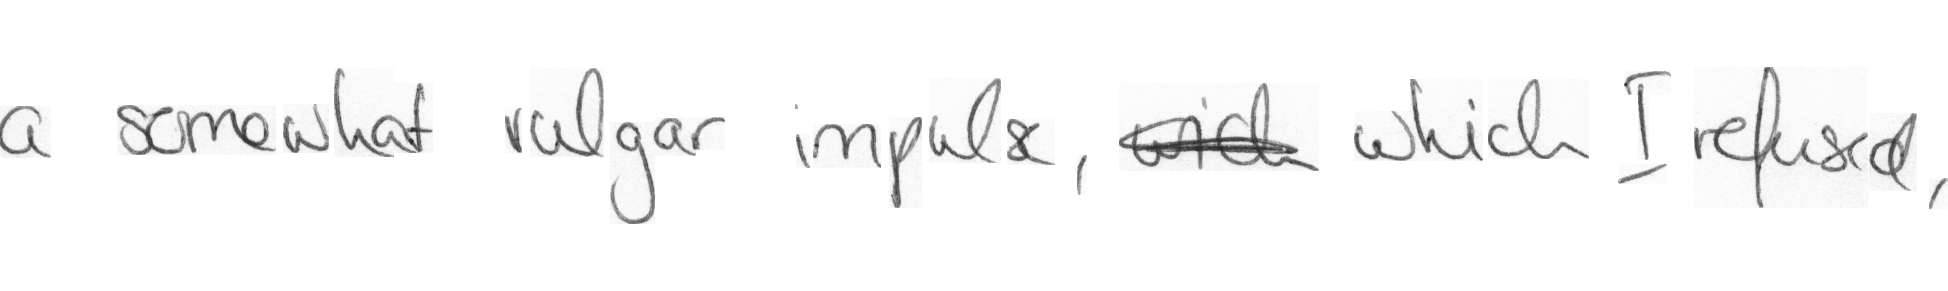 a somewhat vulgar impulse, which I refused,